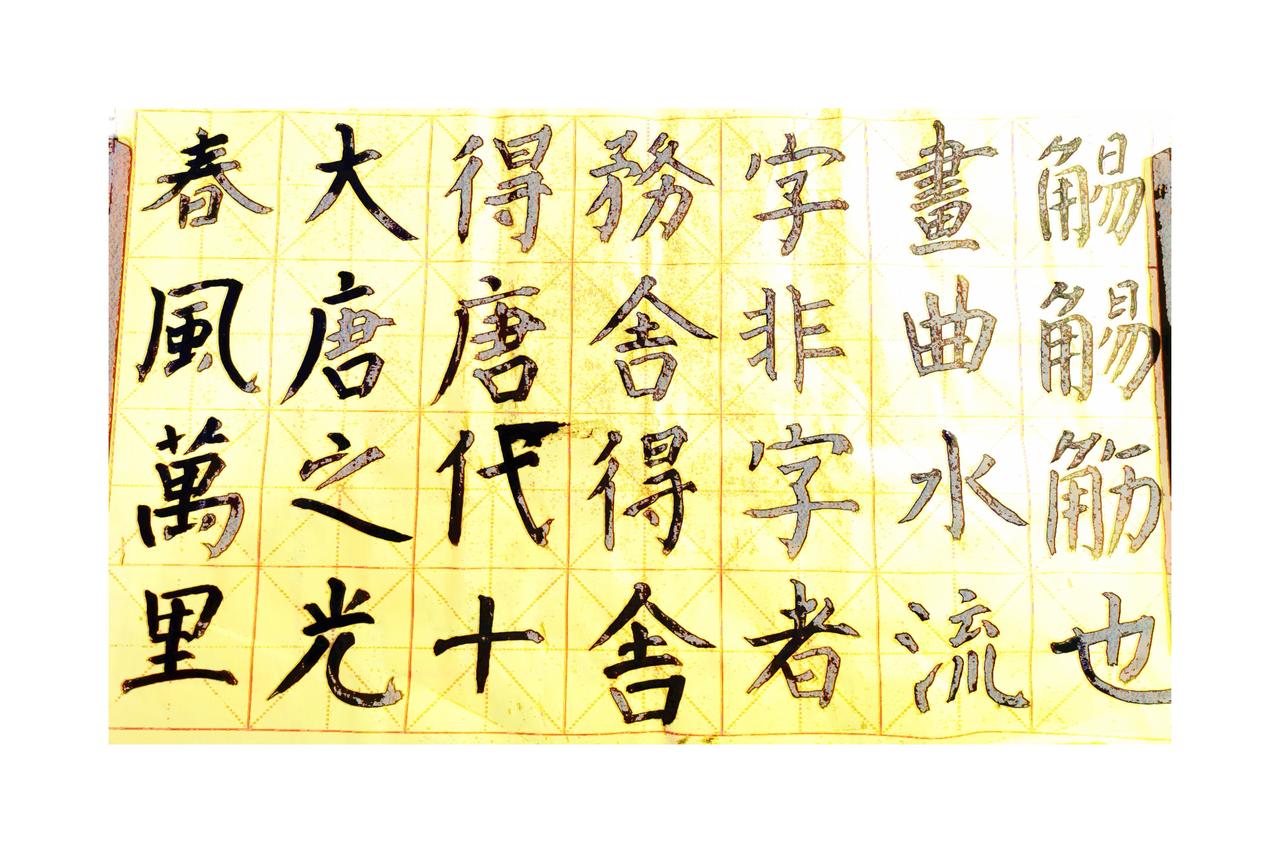 春風萬里
大唐之光
得唐代十
務舍得舍
字非字者
畫曲水流
觴觴筋也